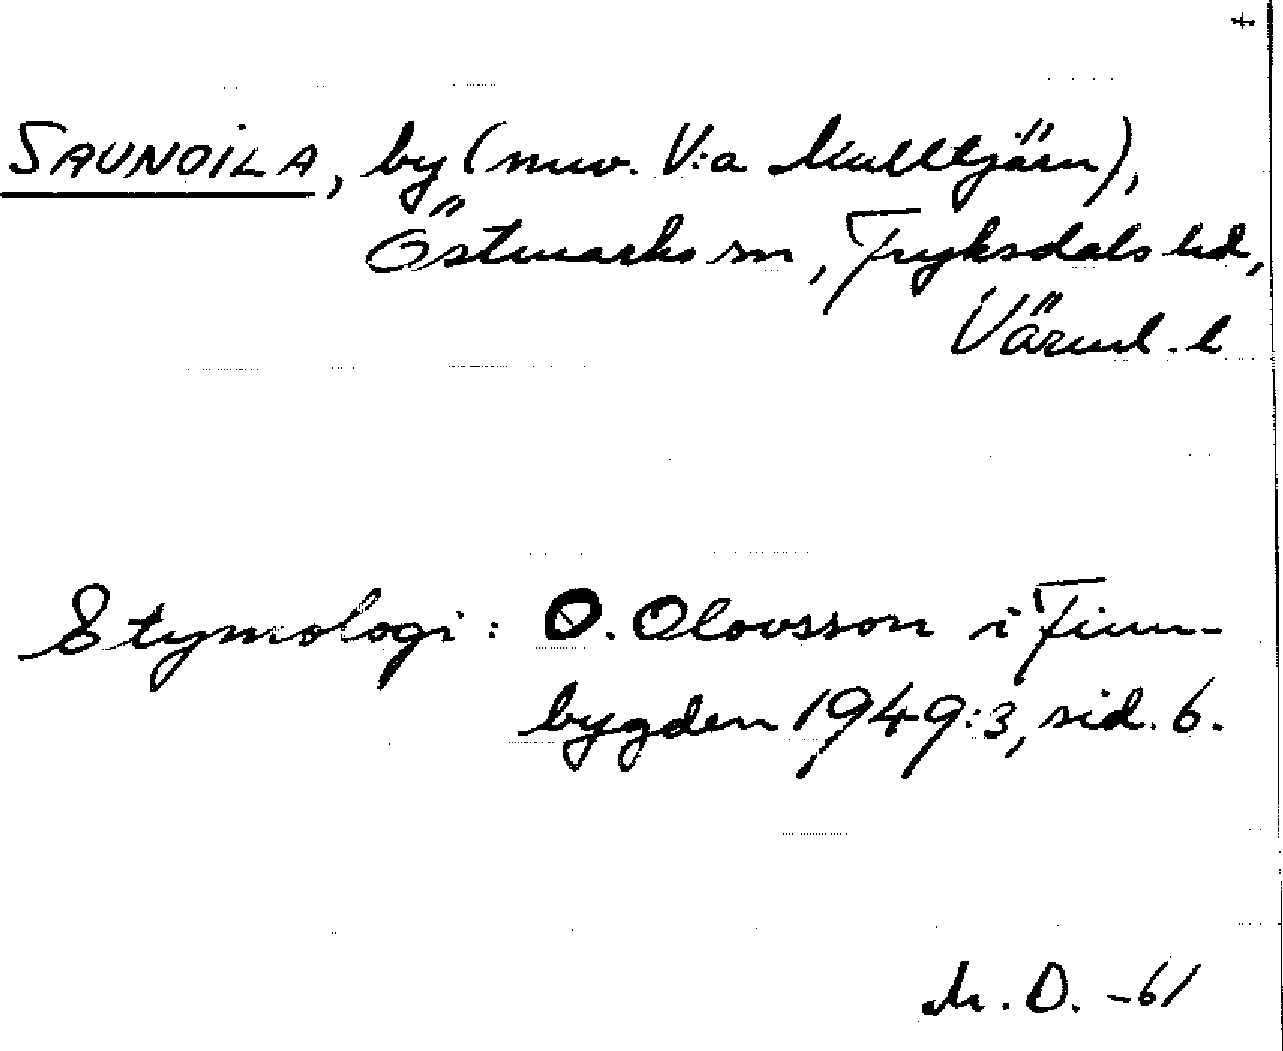 SAUNOILA, by (nuv. V:a Mulltjärn),
Östmarks sn, Fryksdals hd,
Värml. l
Etymologi: O. Olovsson i Finn-
bygden 1949:3, sid. 6.
M. D. -61